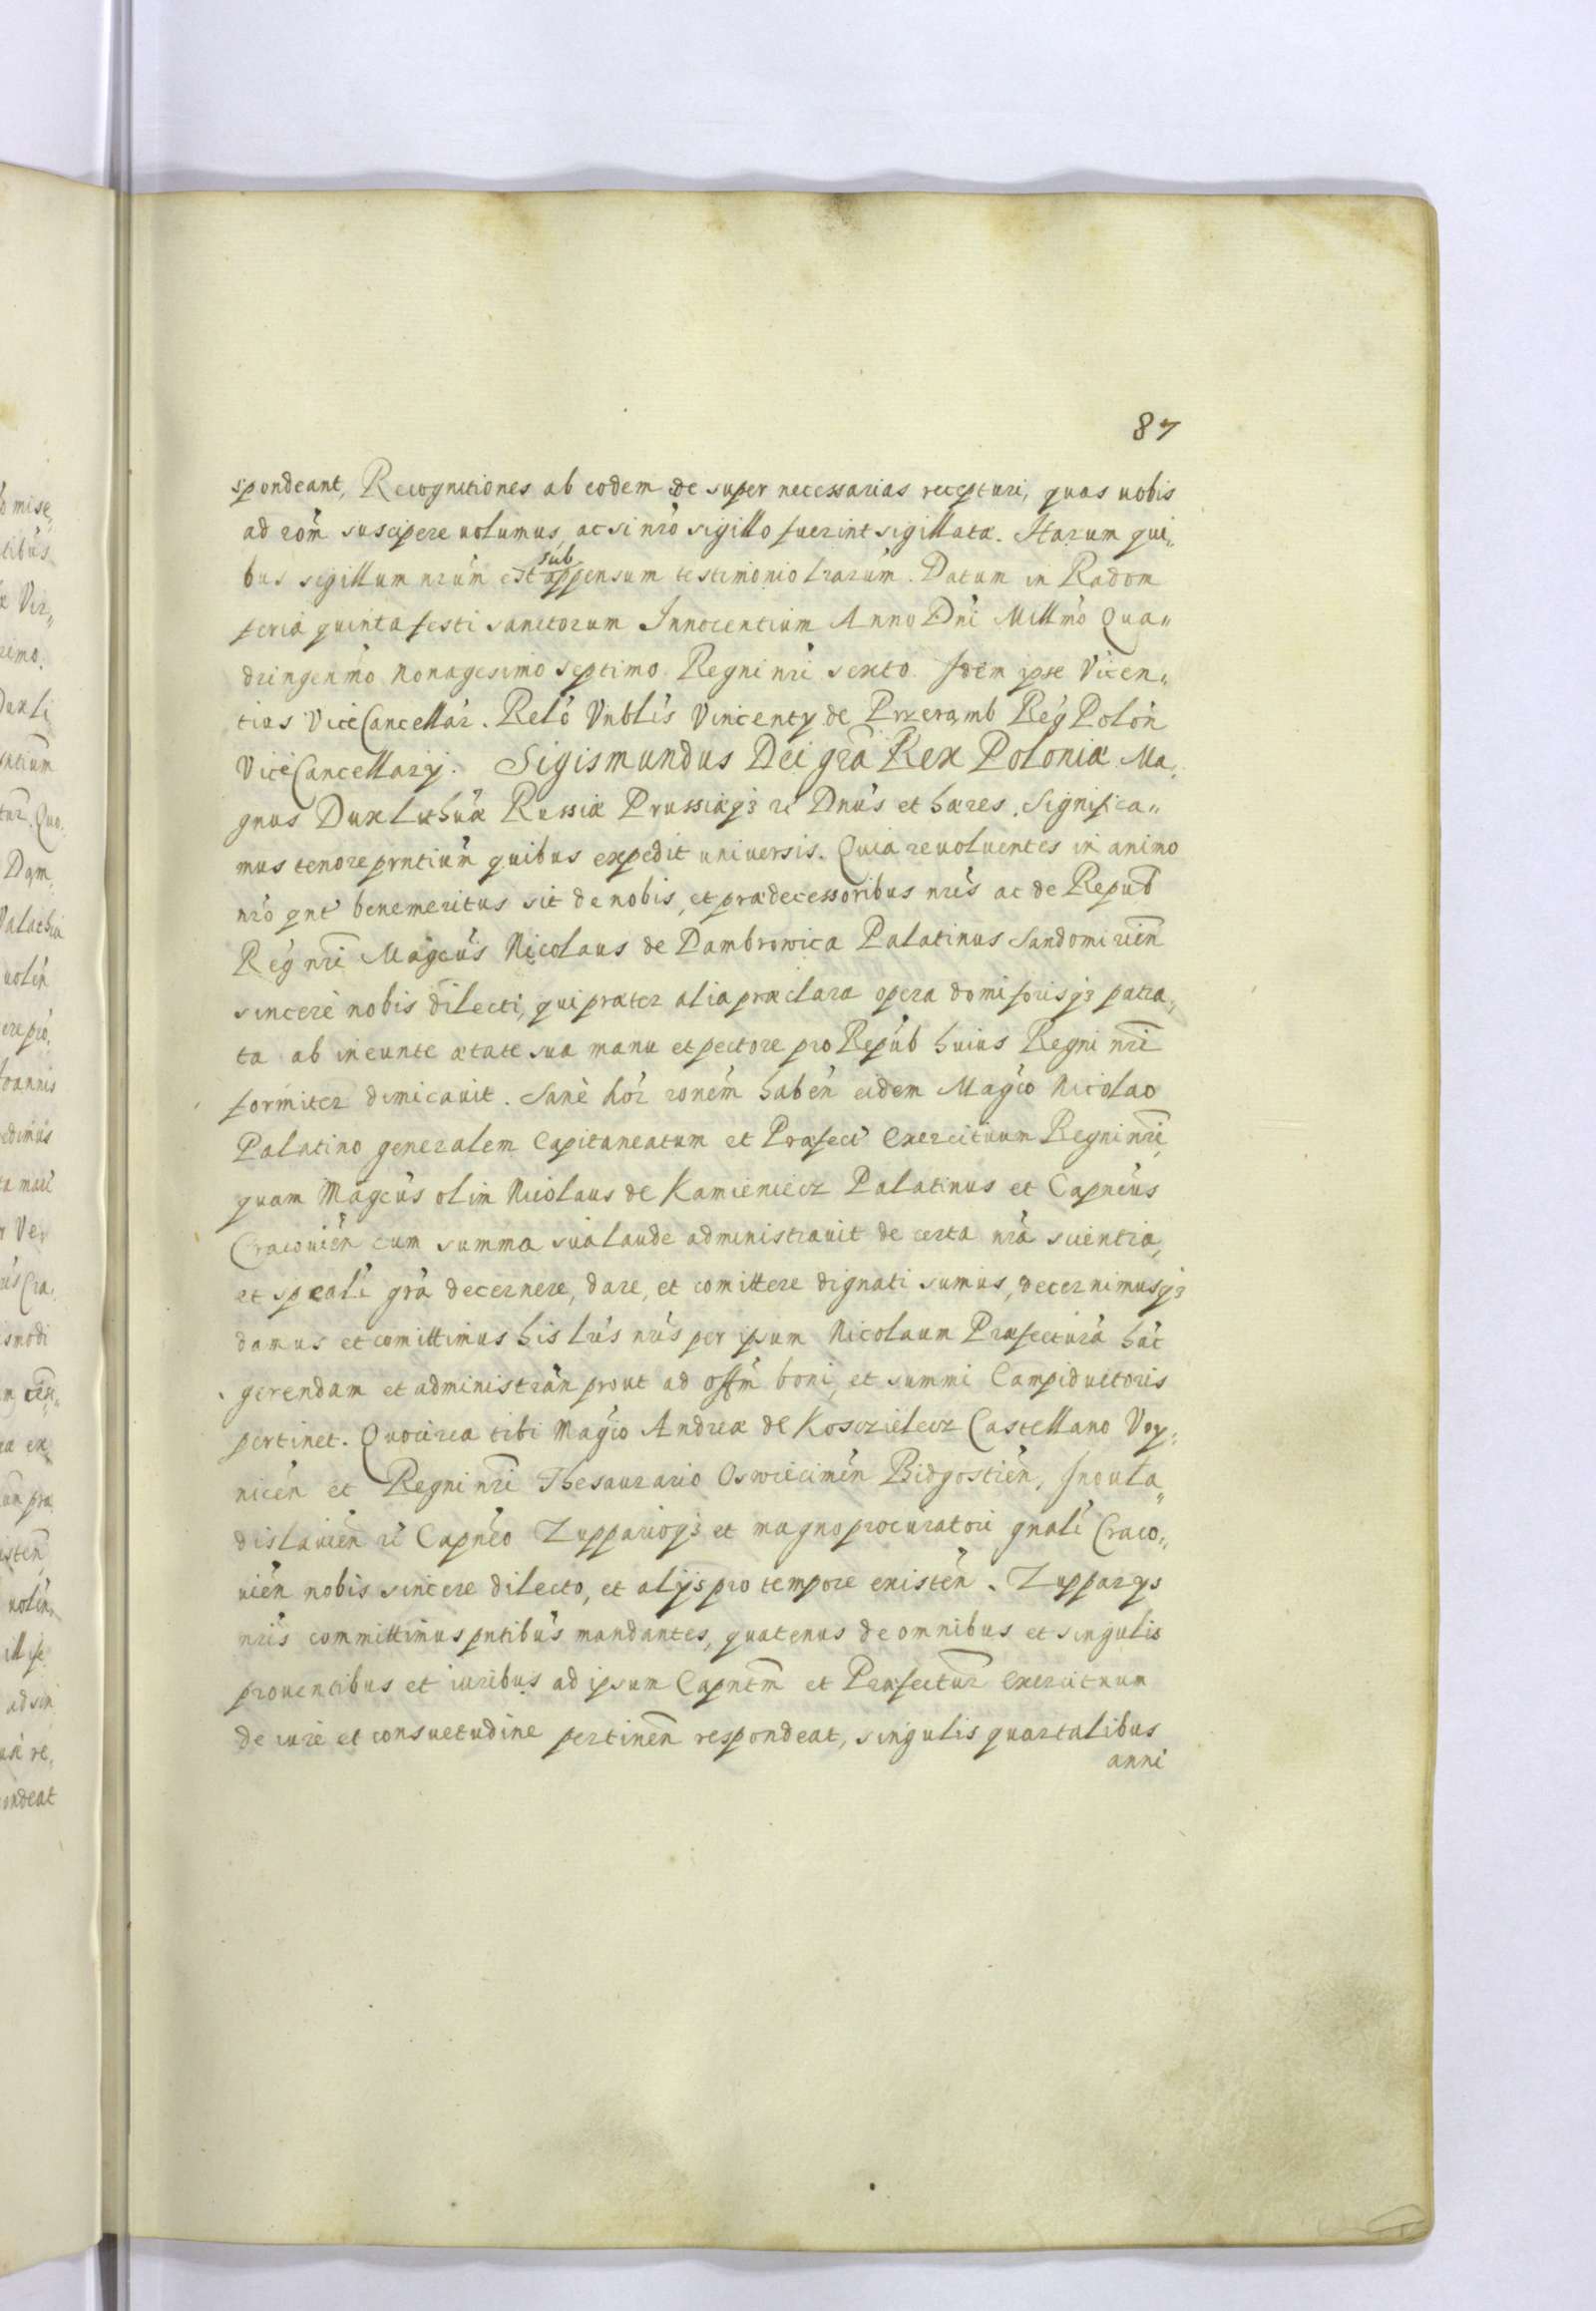 87
spondeant, Recognitiones ab eodem de super necessarias recepturi, quas uobis
ad rom̃ suscipere uolumus, ac si nr̃o sigillo fuerint sigillatæ. Harum qui„
bus sigillum nrũm est sub appensum testimonio lrarũm. Datum in Radom
feria quinta festi sanctorum Innocentium Anno Dni Millmo Qua„
dringenmo Nonagesimo septimo. Regni nri sexto. Idem ipse Vicen„
tius ViceCancellar. Relo Vnblis Vincenty de Przeramb Reg Polon
ViceCancellarÿ. Sigismundus Dei gra Rex Poloniæ Ma„
gnus Dux Lithuæ Russiæ Prussiæqȝ re Dnus et hæres. Significa„
mus tenore prntium quibus expedit universis. Quia reuoluentes in animo
nro qnt benemeritus sit de nobis, et prædecessoribus nris ac de Repub
Reg nri Magcus Nicolaus de Dambrowica Palatinus Sandomirien
sincere nobis dilecti, qui præter alia præclara opera domi forisqȝ patra„
ta ab ineunte ætate sua manu et pectore pro Repub huius Regni nri
formiter dimicauit. Sane hor ronem haben eidem Magco Nicolao
Palatino generalem Capitaneatum et Præfect exercituum Regni nri,
quam Magcus olim Nicolaus de Kamieniecz Palatinus et Capneus
Cracouien cum summa sua laude administrauit de certa nra scientia,
et speali gra decernere, dare, et comittere dignati sumus, decernimusqȝ
damus et comittimus his lris nris per ipsum Nicolaum Præfectura hac
gerendam et administran prout ad offm boni, et summi Campiductoris
pertinet. Quocirca tibi Magco Andreæ de Koscielecz Castellano Voy„
nicen et Regni nri Thesaurario Oswiecimen Bidgostien, Inoula„
dislauien re Capneo Zupparioqȝ et magno procuratori gnali Craco„
uien nobis sincere dilecto, et alijs pro tempore existen. Zupparys
nris committimus pntibus mandantes, quatenus de omnibus et singulis
prouentibus et iuribus ad ipsum Capntm et Præfectur exercituum
de iure et consuetudine pertinen respondeat, singulis quartalibus
anni